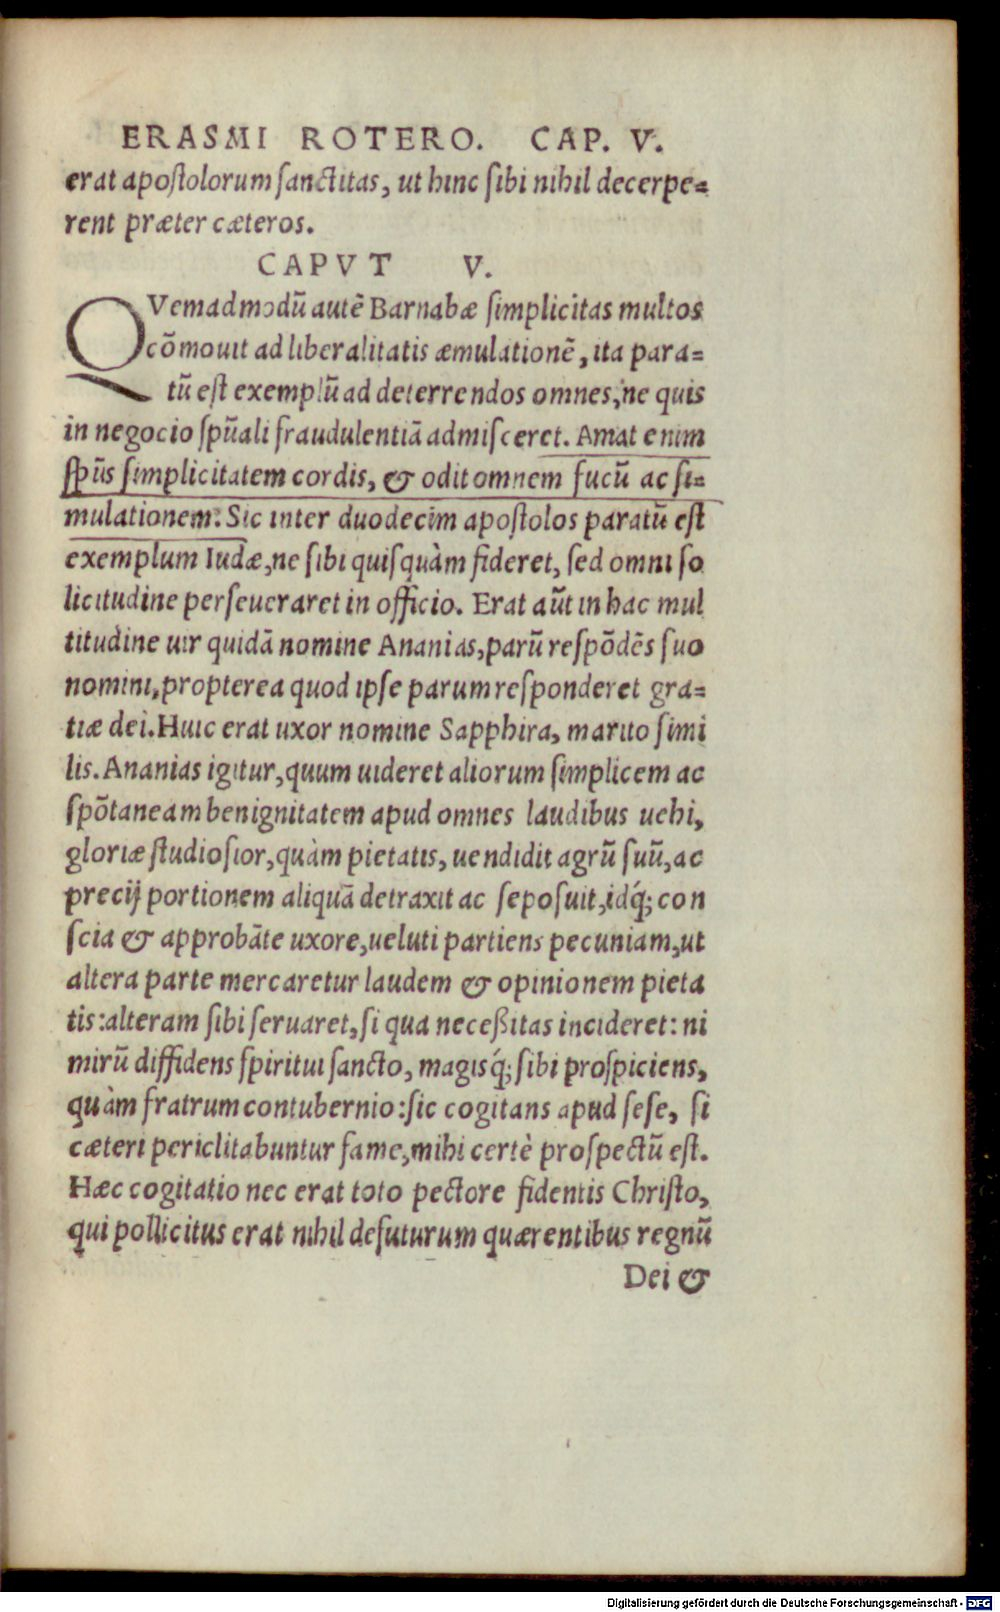 ERASMI ROTERO. CAP. V.
erat apoſtolorum ſanctitas, ut hinc ſibi nihil decerpe=
rent præter cæteros.
CAPVT V.
QVemadmodũ autẽ Barnabæ ſimplicitas multos
cõmouit ad liberalitatis æmulationẽ, ita para=
tũ eſt exemplũ ad deterrendos omnes, ne quis
in negocio ſpũali fraudulentiã admiſceret. Amat enim
ſpũs ſimplicitatem cordis, & odit omnem fucũ ac ſi=
mulationem. Sic inter duodecim apoſtolos paratũ eſt
exemplum Iudæ, ne ſibi quiſquàm fideret, ſed omni ſo
licitudine perſeueraret in officio. Erat aũt in hac mul
titudine uir quidã nomine Ananias, parũ reſpõdẽs ſuo
nomini, propterea quod ipſe parum reſponderet gra=
tiæ dei. Huic erat uxor nomine Sapphira, marito ſimi
lis. Ananias igitur, quum uideret aliorum ſimplicem ac
ſpõtaneam benignitatem apud omnes laudibus uehi,
gloriæ ſtudioſior, quàm pietatis, uendidit agrũ ſuũ, ac
precij portionem aliquã detraxit ac ſepoſuit, idq́; con
ſcia & approbãte uxore, ueluti partiens pecuniam, ut
altera parte mercaretur laudem & opinionem pieta
tis: alteram ſibi ſeruaret, ſi qua neceßitas incideret: ni
mirũ diffidens ſpiritui ſancto, magisq́; ſibi proſpiciens,
quàm fratrum contubernio: ſic cogitans apud ſeſe, ſi
cæteri periclitabuntur fame, mihi certè proſpectũ eſt.
Hæc cogitatio nec erat toto pectore fidentis Chriſto,
qui pollicitus erat nihil defuturum quærentibus regnũ
Dei &
Digitalisierung gefördert durch die Deutsche Forschungsgemeinschaft - DFG